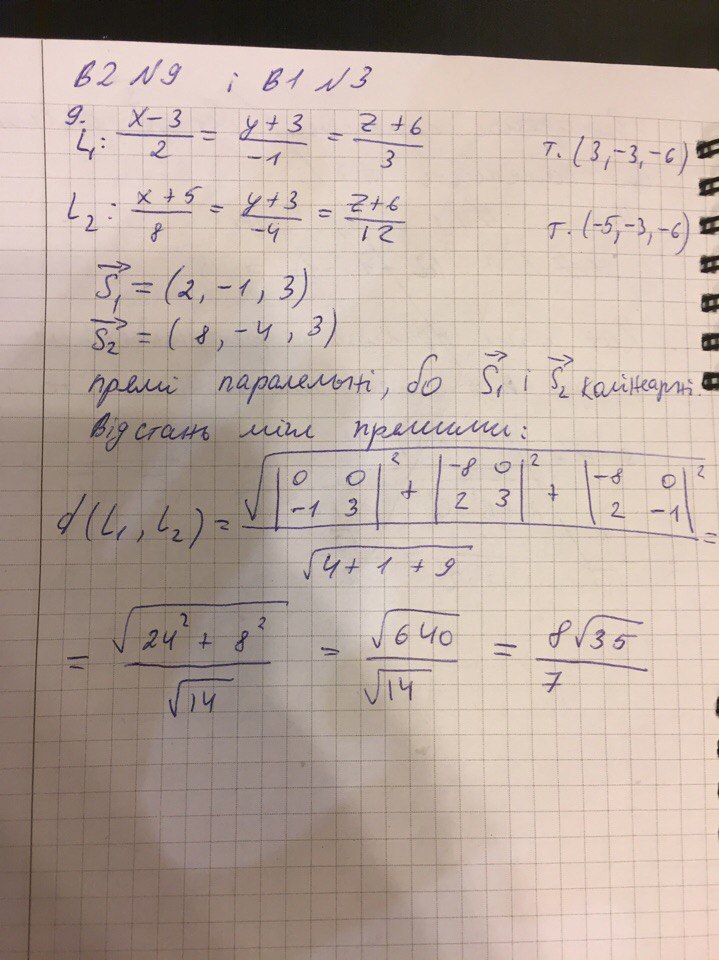 В2 N9 і В1 N3
9.
L₁: (x-3)/2 = (y+3)/-1 = (z+6)/3 т. (3,-3,-6)
L₂: (x+5)/8 = (y+3)/-4 = (z+6)/12 т. (-5,-3,-6)
S⃗₁ = (2, -1, 3)
S⃗₂ = (8, -4, 3)
прямі паралельні, бо S⃗₁ і S⃗₂ колінеарні.
Відстань між прямими:
d(L₁, L₂) = √(|0 0; -1 3|² + |-8 0; 2 3|² + |-8 0; 2 -1|²) / √(4+1+9) =
= √(24² + 8²) / √14 = √640 / √14 = 8√35 / 7